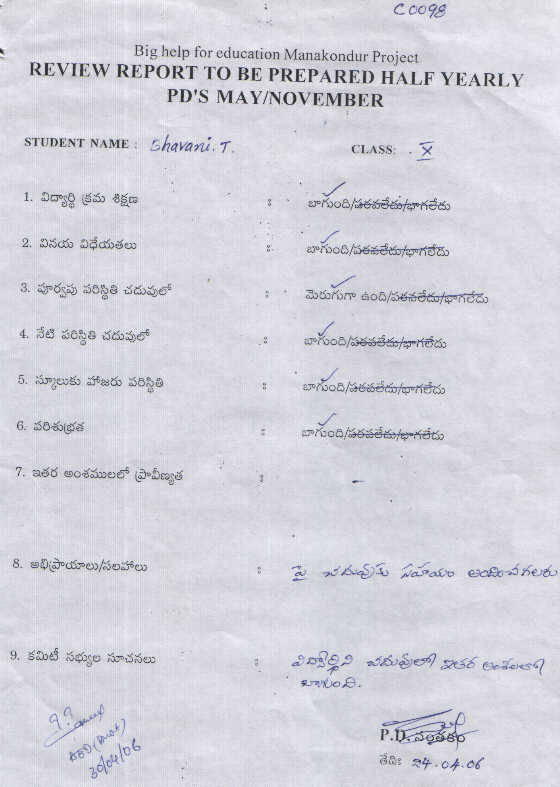 C0098
Big help for education Manakondur Project
REVIEW REPORT TO BE PREPARED HALF YEARLY
PD'S MAY/NOVEMBER
STUDENT NAME : Bhavani. T. CLASS: . X
1. విద్యార్థి క్రమ శిక్షణ : బాగుంది/పరవలేదు/భాగలేదు
2. వినయ విధేయతలు : బాగుంది/పరవలేదు/భాగలేదు
3. పూర్వపు పరిస్థితి చదువులో : మెరుగుగా ఉంది/పరవలేదు/భాగలేదు
4. నేటి పరిస్థితి చదువులో : బాగుంది/పరవలేదు/భాగలేదు
5. స్కూలుకు హాజరు పరిస్థితి : బాగుంది/పరవలేదు/భాగలేదు
6. పరిశుభ్రత : బాగుంది/పరవలేదు/భాగలేదు
7. ఇతర అంశములలో ప్రావీణ్యత : -
8. అభిప్రాయాలు/సలహాలు : పై చదువుకు సహాయం అందించగలరు
9. కమిటీ సభ్యుల సూచనలు : విద్యార్థిని చదువులో ఇతర అంశాలలో
బాగుంది.
P.D. సంతకం
30/04/06
తేది: 24.04.06